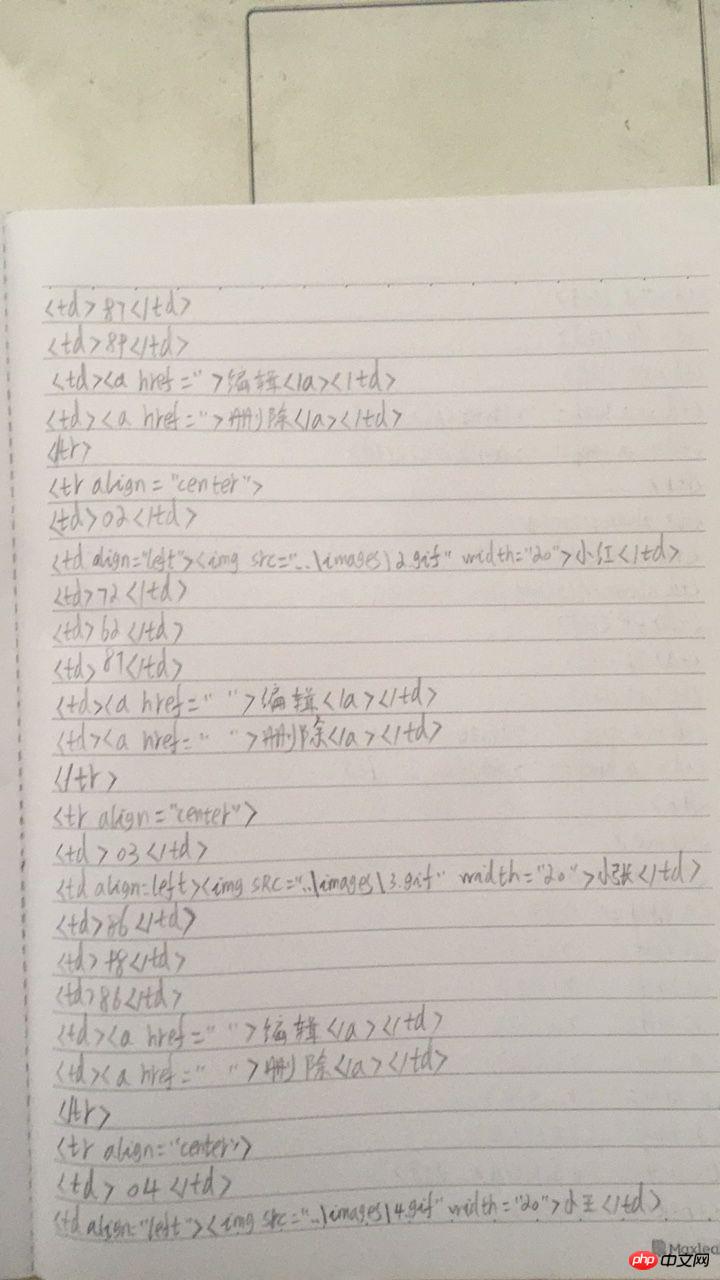 <td>87</td>
<td>89</td>
<td><a href="">编辑</a></td>
<td><a href="">删除</a></td>
</tr>
<tr align="center">
<td>02</td>
<td align="left"><img src="..\images\2.gif" width="20">小红</td>
<td>72</td>
<td>62</td>
<td>87</td>
<td><a href=" ">编辑</a></td>
<td><a href=" ">删除</a></td>
</tr>
<tr align="center">
<td>03</td>
<td align=left><img SRC="..\images\3.gif" width="20">小张</td>
<td>86</td>
<td></td>
<td>86</td>
<td><a href=" ">编辑</a></td>
<td><a href=" ">删除</a></td>
</tr>
<tr align="center">
<td>04</td>
<td align="left"><img src="..\images\4.gif" width="20">小王</td>
Maxlea
php 中文网